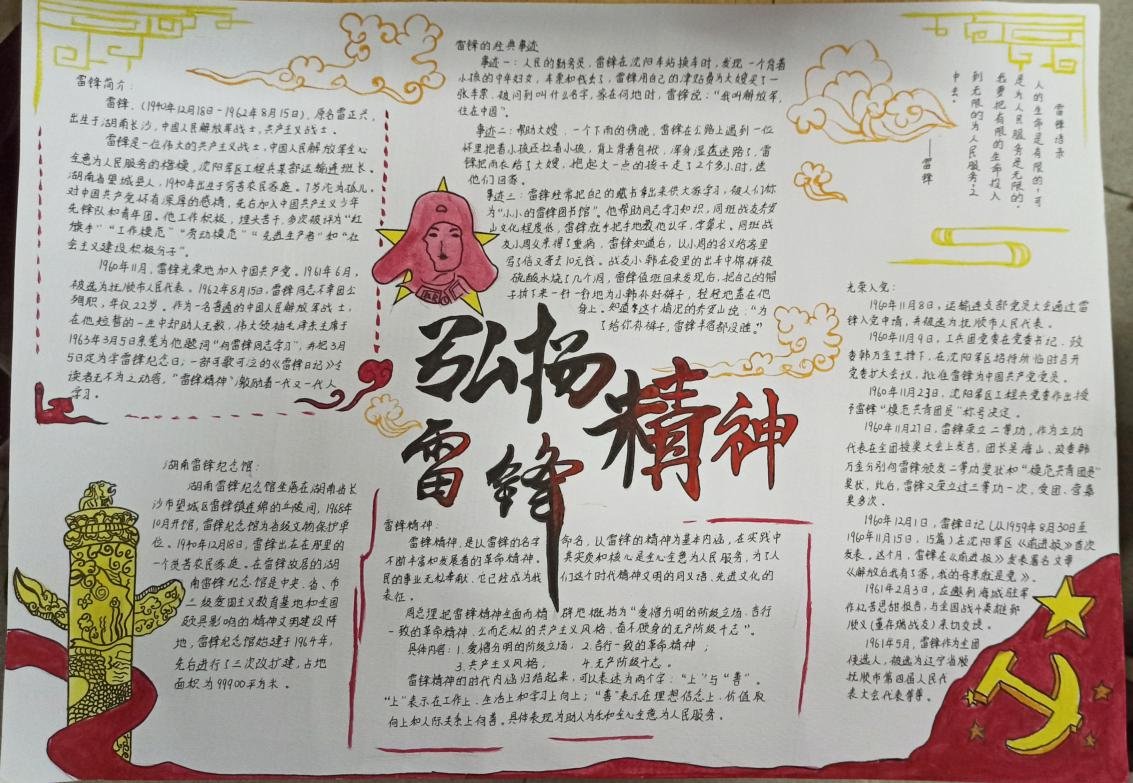 雷锋简介：
雷锋，（1940年12月18日-1962年8月15日），原名雷正兴，
出生于湖南长沙，中国人民解放军战士，共产主义战士。
雷锋是一位伟大的共产主义战士，中国人民解放军全心
全意为人民服务的楷模，沈阳军区工程兵某部运输连班长。
湖南省望城县人，1940年出生于穷苦农民家庭。7岁沦为孤儿，
对中国共产党怀有深厚的感情，先后加入中国共产主义少年
先锋队和青年团。他工作积极，埋头苦干，多次被评为“红
旗手”“工作模范”“劳动模范”“先进生产者”和“社
会主义建设积极分子”。
1960年11月，雷锋光荣地加入中国共产党。1961年6月，
被选为抚顺市人民代表。1962年8月15日，雷锋同志不幸因公
殉职，年仅22岁。作为一名普通的中国人民解放军战士，
在他短暂的一生中却助人无数，伟大领袖毛泽东主席于
1963年3月5日亲笔为他题词“向雷锋同志学习”，并把3月
5日定为学雷锋纪念日；一部可歌可泣的《雷锋日记》令
读者无不为之动容，“雷锋精神”激励着一代又一代人
学习。
雷锋的经典事迹
事迹一：人民的勤务员，雷锋在沈阳车站换车时，发现一个背着
小孩的中年妇女，车票和钱丢了，雷锋用自己的津贴费为大嫂买了一
张车票，被问到叫什么名字，家在何地时，雷锋说：“我叫解放军，
住在中国”。
事迹二：帮助大嫂，一个下雨的傍晚，雷锋在公路上遇到一位
怀里抱着小孩还拉着小孩，背上背着包袱，浑身湿透迷路了，雷
锋把雨衣给了大嫂，抱起大一点的孩子走了2个多小时，送
他们回家。
事迹三：雷锋经常把自己的藏书拿出来供大家学习，被人们称
为“小小的雷锋图书馆”。他帮助同志学习知识，同班战友乔安
山文化程度低，雷锋就手把手地教他认字，学算术。同班战
友小周父亲得了重病，雷锋知道后，以小周的名义给家里
写了信又寄去10元钱。战友小韩在夜里的出车中棉裤被
硫酸水烧了几个洞，雷锋值班回来发现后，把自己的帽
子拆下来一针一针地为小韩补好裤子，轻轻地盖在他
身上。知道这个情况的乔安山说：“为
了给你补裤子，雷锋半宿都没睡。”
雷锋语录
人的生命是有限的，可
是为人民服务是无限的，
我要把有限的生命投入
到无限的为人民服务之
中去。
——雷锋
弘扬
雷锋
精神
光荣入党：
1960年11月8日，运输连支部党员大会通过雷
锋入党申请，并被选为抚顺市人民代表。
1960年11月9日，工兵团党委在党委书记、政
委韩万金主持下，在沈阳军区招待所临时召开
党委扩大会议，批准雷锋为中国共产党党员。
1960年11月23日，沈阳军区工程兵党委作出授
予雷锋“模范共青团员”称号决定。
1960年11月27日，雷锋荣立二等功，作为立功
代表在全团授奖大会上发言，团长吴海山、政委韩
万金分别向雷锋颁发二等功奖状和“模范共青团员”
奖状，此后，雷锋又荣立过三等功一次，受团、营嘉
奖多次。
1960年12月1日，雷锋日记（从1959年8月30日至
1960年11月15日，15篇）在沈阳军区《前进报》首次
发表。这个月，雷锋在《前进报》发表署名文章
《解放后我有了家，我的母亲就是党》。
1961年2月3日，应邀到海城驻军
作忆苦思甜报告，与全国战斗英雄郅
顺义（董存瑞战友）亲切交谈。
1961年5月，雷锋作为全团
候选人，被选为辽宁省抚
抚顺市第四届人民代
表大会代表等等。
湖南雷锋纪念馆：
湖南雷锋纪念馆坐落在湖南省长
沙市望城区雷锋镇连绵的丘陵间，1968年
10月开馆，雷锋纪念馆为省级文物保护单
位。1940年12月18日，雷锋出在在那里的
一个贫苦农民家庭。在雷锋故居的湖
南雷锋纪念馆是中央、省、市
三级爱国主义教育基地和全国
颇具影响的精神文明建设阵
地，雷锋纪念馆始建于1964年，
先后进行了三次改扩建，占地
面积为99900平方米。
雷锋精神：
雷锋精神，是以雷锋的名字命名，以雷锋的精神为基本内涵，在实践中
不断丰富和发展着的革命精神。其实质和核心是全心全意为人民服务，为了人
民的事业无私奉献，它已经成为我们这个时代精神文明的同义语，先进文化的
表征。
周总理把雷锋精神全面而精辟地概括为“爱憎分明的阶级立场、言行
一致的革命精神、公而忘私的共产主义风格、奋不顾身的无产阶级斗志”。
具体内容：1.爱憎分明的阶级立场； 2.言行一致的革命精神；
3.共产主义风格； 4.无产阶级斗志。
雷锋精神的时代内涵归结起来，可以表达为两个字：“上”与“善”。
“上”表示在工作上、生活上和学习上向上；“善”表示在理想信念上、价值取
向上和人际关系上向善。具体表现为助人为乐和全心全意为人民服务。